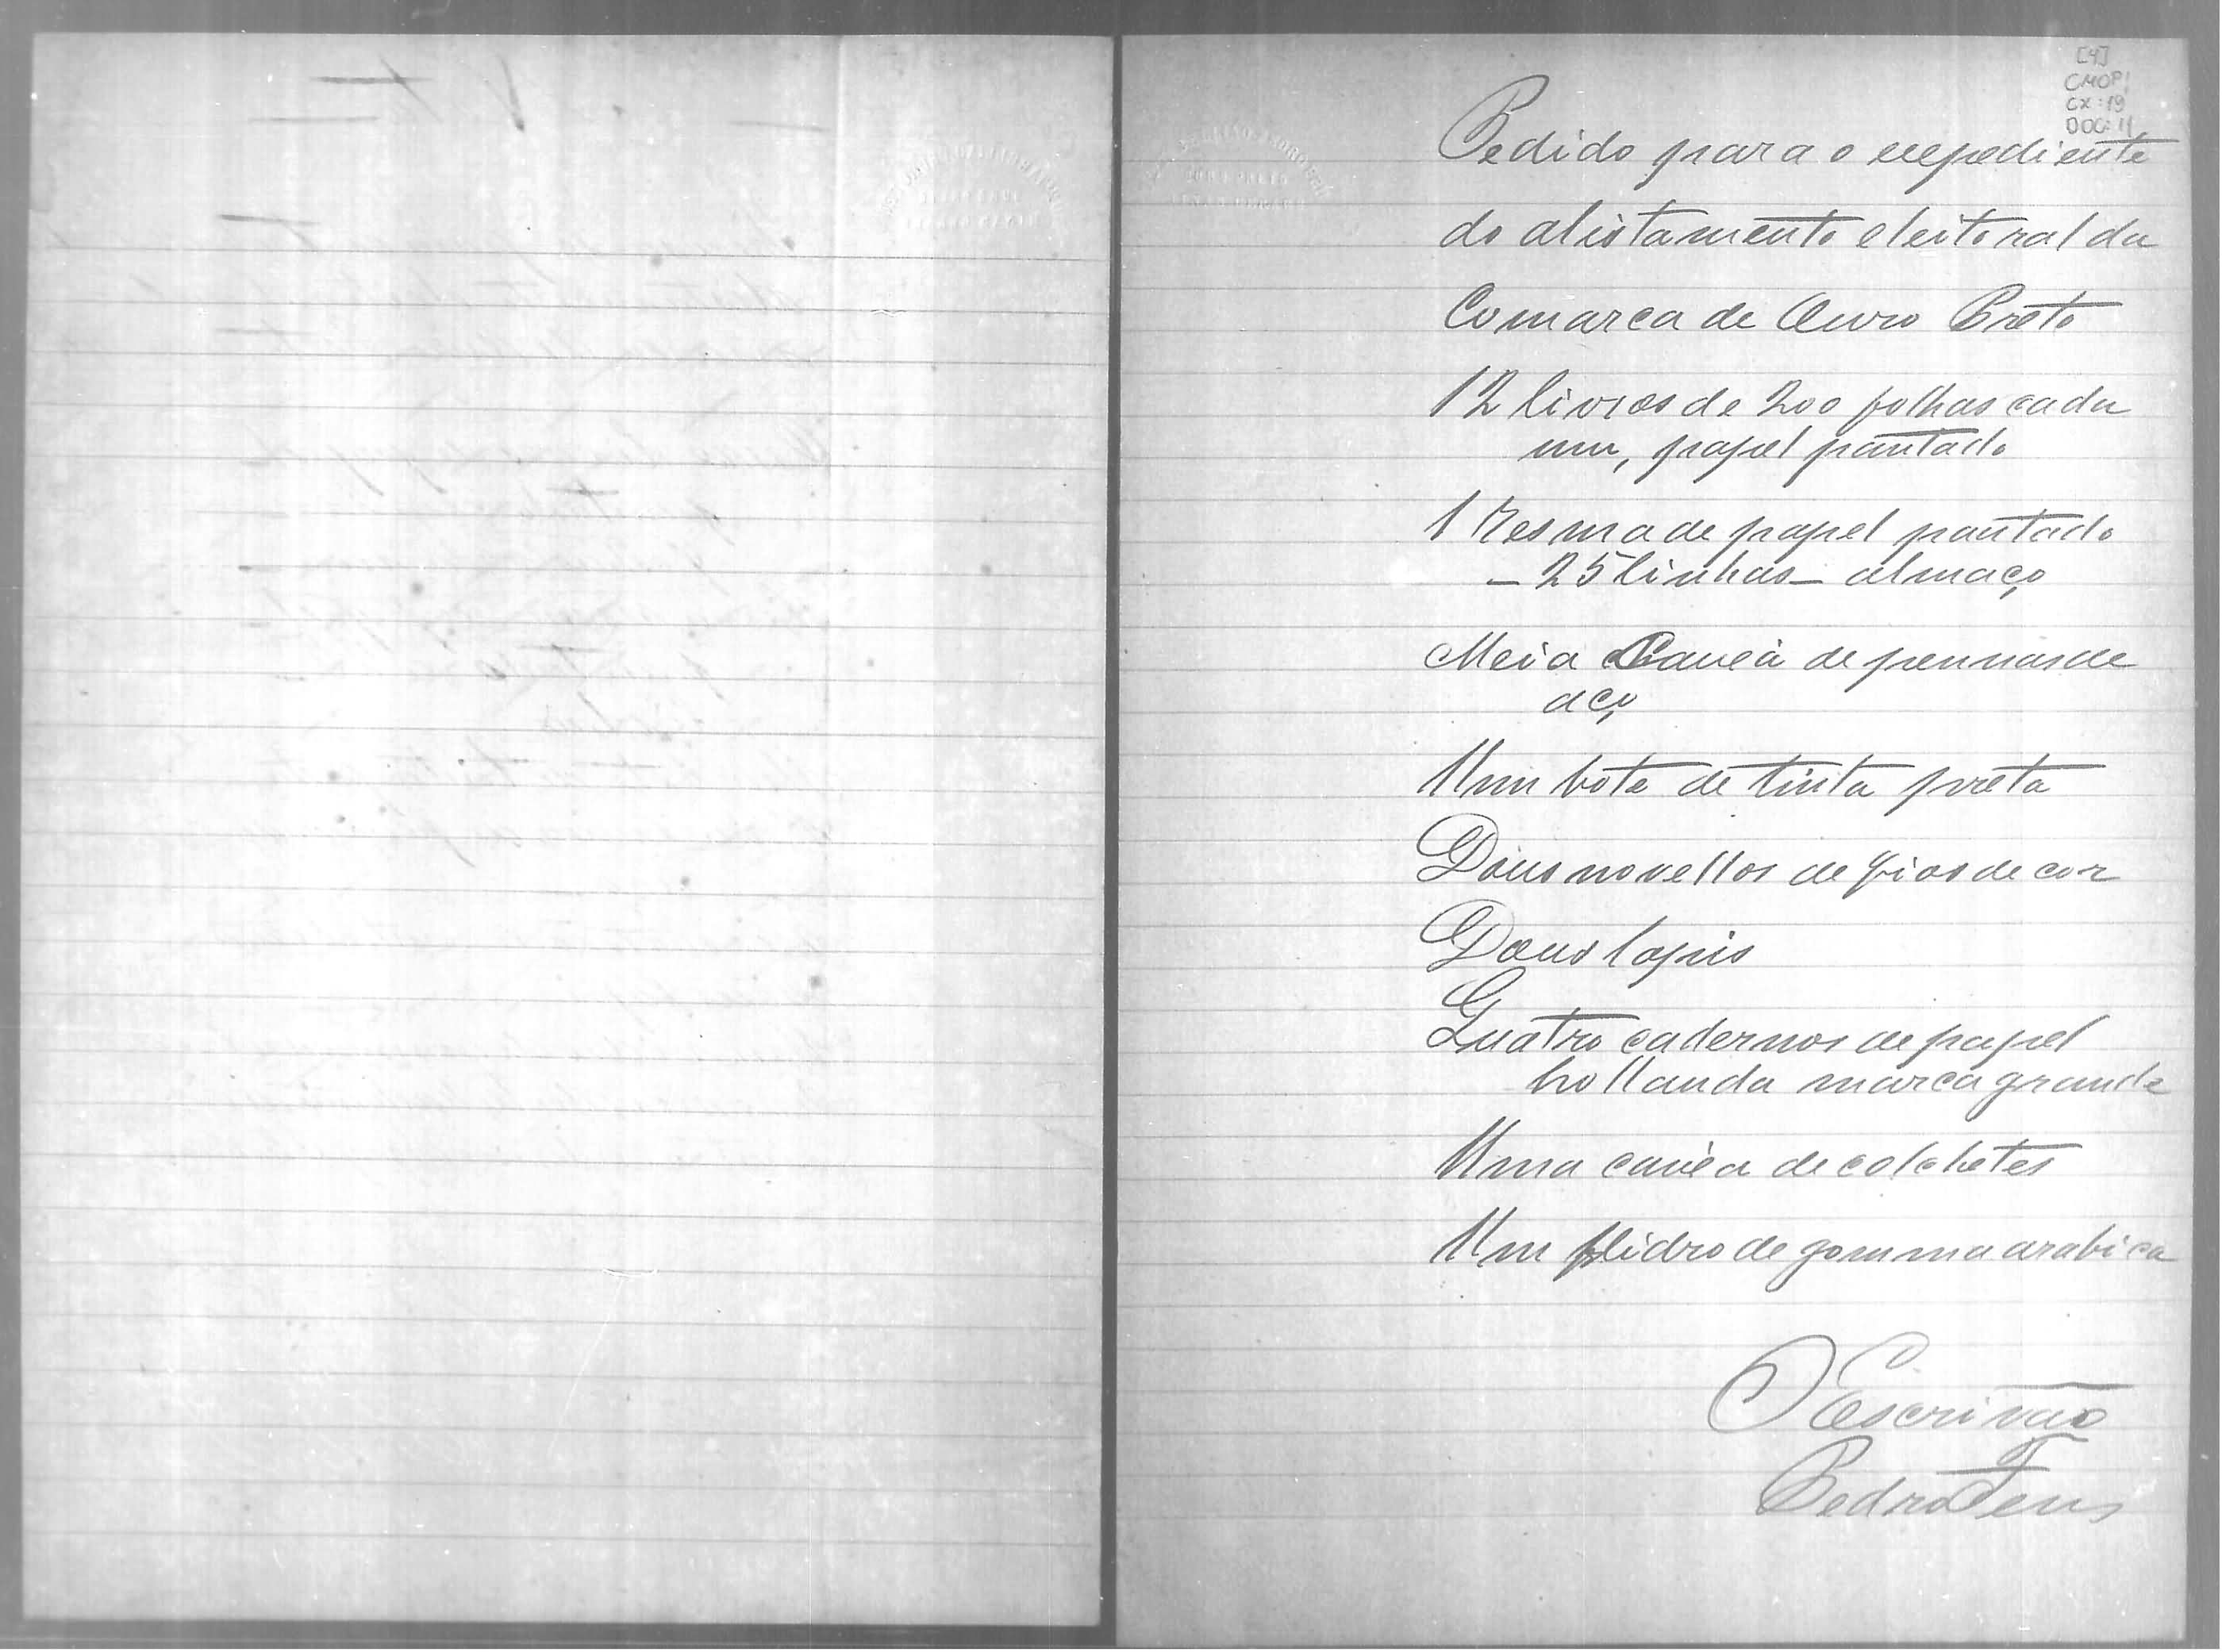 [4]
CMOP
CX: 19
DOC: 11
Pedido para o expediente
do alistamento eleitoral da
Comarca de Ouro Preto
12 livros de 200 folhas cada
um, papel pautado
1 Resma de papel pautado
– 25 linhas – almaço
Meia Caixa de pennas de
aço
Um bote de tinta preta
Dous novellos de fios de cor
Dous lapis
Quatro cadernos de papel
hollanda marca grande
Uma caixa de colchetes
Um vidro de gomma arabica
O Escrivão
Pedro